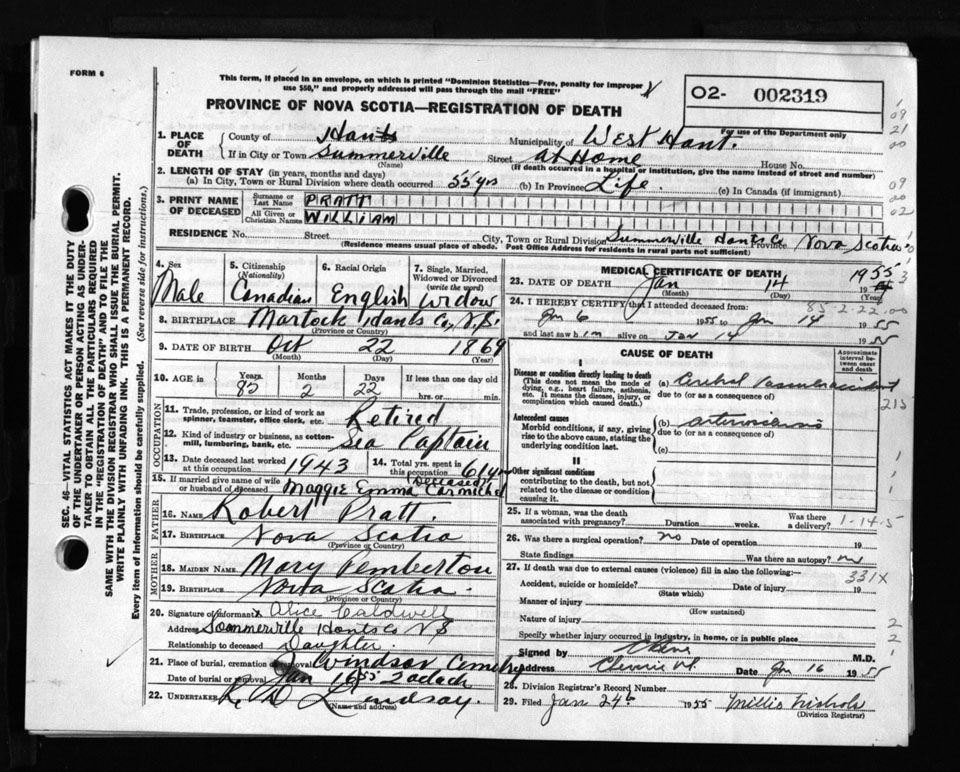 FORM 6
This form, if placed in an envelope, on which is printed "Dominion Statistics—Free, penalty for improper
use $50," and properly addressed will pass through the mail "FREE"
PROVINCE OF NOVA SCOTIA—REGISTRATION OF DEATH
O2- 002319
For use of the Department only
1. PLACE OF DEATH
County of Hants Municipality of West Hant.
If in City or Town Summerville Street at Home House No.
(Name) (If death occurred in a hospital or institution, give the name instead of street and number)
2. LENGTH OF STAY (in years, months and days)
(a) In City, Town or Rural Division where death occurred 55 yrs (b) In Province Life. (c) In Canada (if immigrant)
3. PRINT NAME OF DECEASED
Surname or Last Name PRATT
All Given or Christian Names WILLIAM
RESIDENCE No. Street City, Town or Rural Division Summerville Hants Co Province Nova Scotia
(Residence means usual place of abode. Post Office Address for residents in rural parts not sufficient)
4. Sex Male
5. Citizenship (Nationality) Canadian
6. Racial Origin English
7. Single, Married, Widowed or Divorced (write the word) Widow
8. BIRTHPLACE Martock Hants Co, N.S.
(Province or Country)
9. DATE OF BIRTH Oct 22 1869
(Month) (Day) (Year)
10. AGE in Years 85 Months 2 Days 22 If less than one day old
hrs. or min.
OCCUPATION
11. Trade, profession, or kind of work as spinner, teamster, office clerk, etc. Retired
12. Kind of industry or business, as cotton-mill, lumbering, bank, etc. Sea Captain
13. Date deceased last worked at this occupation 1943
14. Total yrs. spent in this occupation 61 yrs
15. If married give name of wife or husband of deceased Maggie Emma Carmichel (Deceased)
FATHER
16. NAME Robert Pratt.
17. BIRTHPLACE Nova Scotia
(Province or Country)
MOTHER
18. MAIDEN NAME Mary Pemberton
19. BIRTHPLACE Nova Scotia.
(Province or Country)
20. Signature of informant x Alice Caldwell
Address Sommerville Hants Co N S
Relationship to deceased Daughter.
21. Place of burial, cremation or removal Windsor
Date of burial or removal Jan 16 55 2 oclock
22. UNDERTAKER Lindsay.
(Name and address)
MEDICAL CERTIFICATE OF DEATH
23. DATE OF DEATH Jan 14 1955
(Month) (Day) (Year)
24. I HEREBY CERTIFY that I attended deceased from:
Jan 6 1955 to Jan 14 1955
and last saw him alive on Jan 14 1955
CAUSE OF DEATH
Approximate interval between onset and death
I
Disease or condition directly leading to death
(This does not mean the mode of dying, e.g., heart failure, asthenia, etc. It means the disease, injury, or complication which caused death.)
(a)
due to (or as a consequence of)
Antecedent causes
Morbid conditions, if any, giving rise to the above cause, stating the underlying condition last.
(b)
due to (or as a consequence of)
(c)
II
Other significant conditions
contributing to the death, but not related to the disease or condition causing it.
25. If a woman, was the death associated with pregnancy? Duration weeks. Was there a delivery?
26. Was there a surgical operation? no Date of operation 19
State findings Was there an autopsy? no
27. If death was due to external causes (violence) fill in also the following:—
331X
Accident, suicide or homicide? Date of injury 19
(State which)
Manner of injury
(How sustained)
Nature of injury
Specify whether injury occurred in industry, in home, or in public place
Signed by M.D.
Address Date Jan 16 1955
28. Division Registrar's Record Number
29. Filed Jan 24th 1955
(Division Registrar)
SEC. 46—VITAL STATISTICS ACT MAKES IT THE DUTY
OF THE UNDERTAKER OR PERSON ACTING AS UNDER-
TAKER TO OBTAIN ALL THE PARTICULARS REQUIRED
IN THE "REGISTRATION OF DEATH" AND TO FILE THE
SAME WITH THE DIVISION REGISTRAR WHO SHALL ISSUE THE BURIAL PERMIT.
WRITE PLAINLY WITH UNFADING INK. THIS IS A PERMANENT RECORD.
Every item of information should be carefully supplied. (See reverse side for instructions.)